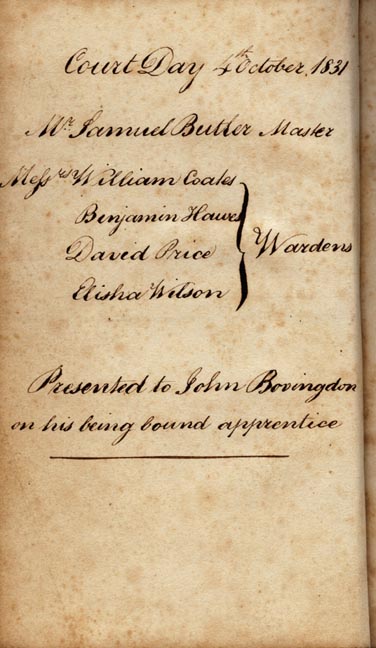 Court Day 4th October, 1831
Mr Samuel Butler Master
Messrs William Coates
Benjamin Hawes
David Price
Elisha Wilson
Wardens
Presented to John Bovingdon
on his being bound apprentice